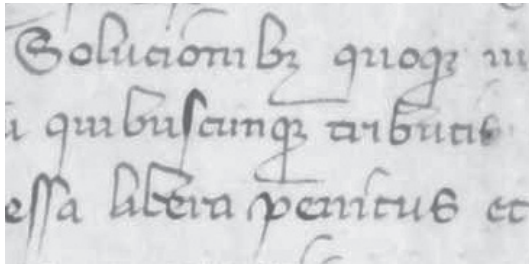 Solucionibꝫ quoqꝫ in
quibuscunqꝫ tributis
essa libera penitus et